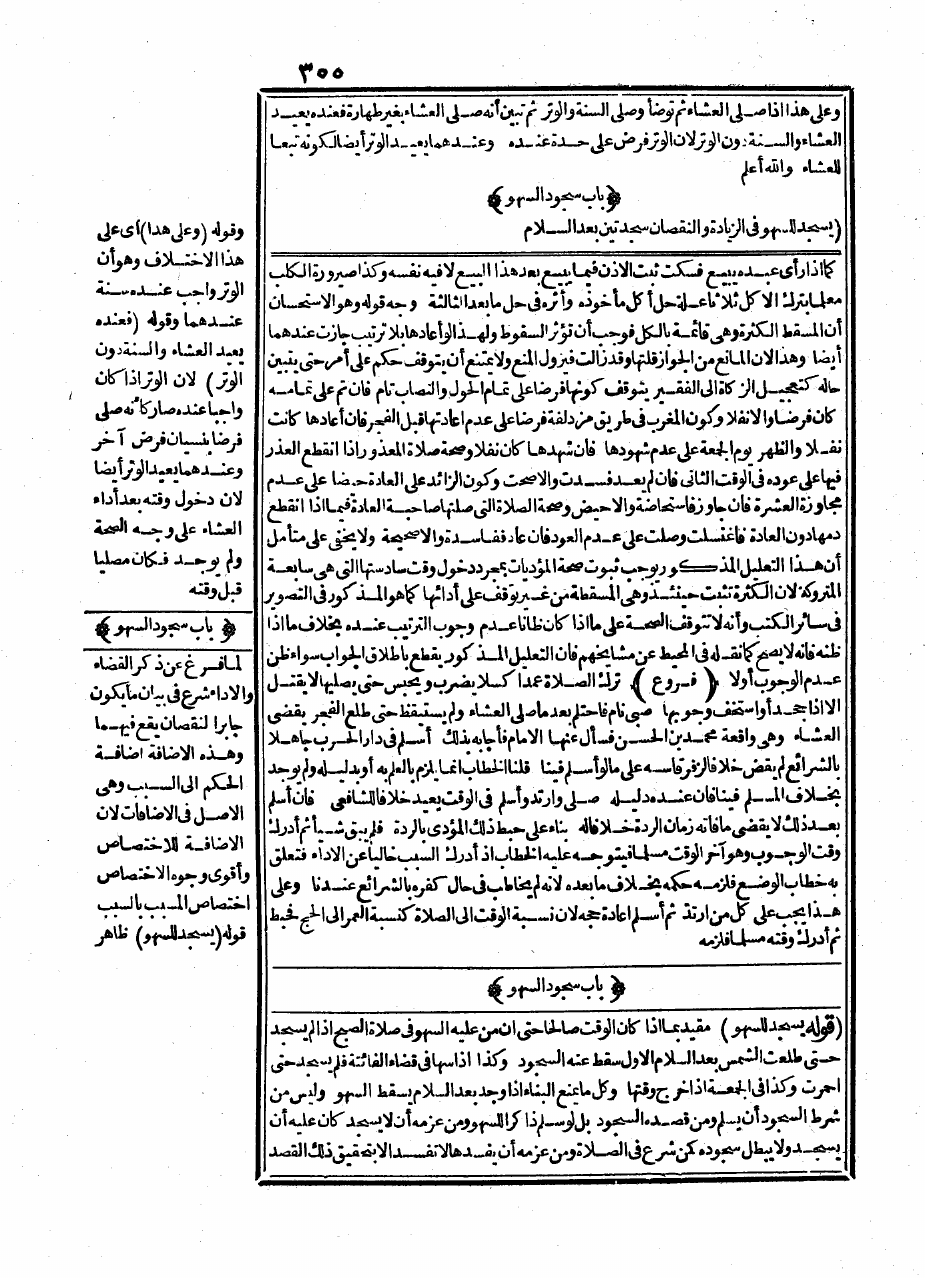 ٣٥٥
وعلى هذا اذا صلى العشاء ثم توضأ وصلى السنة والوتر ثم تبين أنه صلى العشاء بغير طهارة فعنده يعيد
العشاء والسنة دون الوتر لان الوتر فرض على حدة عنده وعندهما يعيد الوتر أيضا لكونه تبعا
للعشاء والله أعلم
﴿باب سجود السهو﴾
(يسجد للسهو فى الزيادة والنقصان سجدتين بعد السلام
كما اذا رأى عبده يبيع فسكت ثبت الاذن فيما يبيع بعد هذا البيع لا فيه نفسه وكذا صيرورة الكلب
معلما بترك الاكل ثلاثا علة حل أكل مأخوذه وأثره فى حل ما بعد الثالثة وجه قوله وهو الاستحسان
أن المسقط الكثرة وهى قائمة بالكل فوجب أن تؤثر السقوط ولهذا لو أعادها بلا ترتيب جازت عندهما
أيضا وهذا لان المانع من الجواز قلتها وقد زالت فيزول المنع ولا يمتنع أن يتوقف حكم على أمر حتى يتبين
حاله كتعجيل الزكاة الى الفقير يتوقف كونها فرضا على تمام الحول والنصاب تام فان تم على تمامه
كان فرضا والا نفلا وكون المغرب فى طريق مزدلفة فرضا على عدم اعادتها قبل الفجر فان أعادها كانت
نفلا والظهر يوم الجمعة على عدم شهودها فان شهدها كان نفلا وصحة صلاة المعذور اذا انقطع العذر
فيها على عوده فى الوقت الثانى فان لم يعد فسدت والا صحت وكون الزائد على العادة حيضا على عدم
مجاوزة العشرة فان جاوز فاستحاضة والا حيض وصحة الصلاة التى صلتها صاحبة العادة فيما اذا انقطع
دمها دون العادة فاغتسلت وصلت على عدم العود فان عاد ففاسدة والا صحيحة ولا يخفى على متأمل
أن هذا التعليل المذكور يوجب ثبوت صحة المؤديات بمجرد دخول وقت سادستها التى هى سابعة
المتروكة لان الكثرة تثبت حينئذ وهى المسقطة من غير توقف على أدائها كما هو المذكور فى التصوير
فى سائر الكتب وأنه لا تتوقف الصحة على ما اذا كان ظانا عدم وجوب الترتيب عنده بخلاف ما اذا
ظنه فانه لا يصح كما نقله فى المحيط عن مشايخهم فان التعليل المذكور يقطع باطلاق الجواب سواء ظن
عدم الوجوب أولا ﴿فروع﴾ ترك الصلاة عمدا كسلا يضرب ويحبس حتى يصليها لا يقتل
الا اذا جحد أو استخف وجوبها صبى نام فاحتلم بعد ما صلى العشاء ولم يستيقظ حتى طلع الفجر يقضى
العشاء وهى واقعة محمد بن الحسن فسأل عنها الامام فأجابه بذلك أسلم فى دار الحرب جاهلا
بالشرائع لم يقض خلافا لزفر قاسه على ما لو أسلم فينا قلنا الخطاب انما يلزم بالعلم به أو بدليله ولم يوجد
بخلاف المسلم فينا فان عنده دليله صلى وارتد وأسلم فى الوقت يعيد خلافا للشافعى فان أسلم
بعد ذلك لا يقضى ما فاته زمان الردة خلافا له بناء على حبط ذلك المؤدى بالردة فلم يبق شيأ ثم أدرك
وقت الوجوب وهو آخر الوقت مسلما فيتوجه عليه الخطاب اذ أدرك السبب خاليا عن الاداء فتعلق
به خطاب الوضع فلزمه حكمه بخلاف ما بعده لانه لم يخاطب فى حال كفره بالشرائع عندنا وعلى
هذا يجب على كل من ارتد ثم أسلم اعادة حجه لان نسبة الوقت الى الصلاة كنسبة العمر الى الحج فحبط
ثم أدرك وقته مسلما فلزمه
﴿باب سجود السهو﴾
(قوله يسجد للسهو) مقيد بما اذا كان الوقت صالحا حتى ان من عليه السهو فى صلاة الصبح اذا لم يسجد
حتى طلعت الشمس بعد السلام الاول سقط عنه السجود وكذا اذا سها فى قضاء الفائتة فلم يسجد حتى
احمرت وكذا فى الجمعة اذا خرج وقتها وكل ما يمنع البناء اذا وجد بعد السلام يسقط السهو وليس من
شرط السجود أن يسلم ومن قصده السجود بل لو سلم ذاكرا للسهو ومن عزمه أن لا يسجد كان عليه أن
يسجد ولا يبطل سجوده كمن شرع فى الصلاة ومن عزمه أن يفسدها لا تفسد الا بتحقيق ذلك القصد
وقوله (وعلى هذا) أى على
هذا الاختلاف وهو أن
الوتر واجب عنده سنة
عندهما وقوله (فعنده
يعيد العشاء والسنة دون
الوتر) لان الوتر اذا كان
واجبا عنده صار كأنه صلى
فرضا بنسيان فرض آخر
وعندهما يعيد الوتر أيضا
لان دخول وقته بعد أداء
العشاء على وجه الصحة
ولم يوجد فكان مصليا
قبل وقته
﴿باب سجود السهو﴾
لما فرغ عن ذكر القضاء
والاداء شرع فى بيان ما يكون
جابرا لنقصان يقع فيهما
وهذه الاضافة اضافة
الحكم الى السبب وهى
الاصل فى الاضافات لان
الاضافة للاختصاص
وأقوى وجوه الاختصاص
اختصاص المسبب بالسبب
قوله (يسجد للسهو) ظاهر